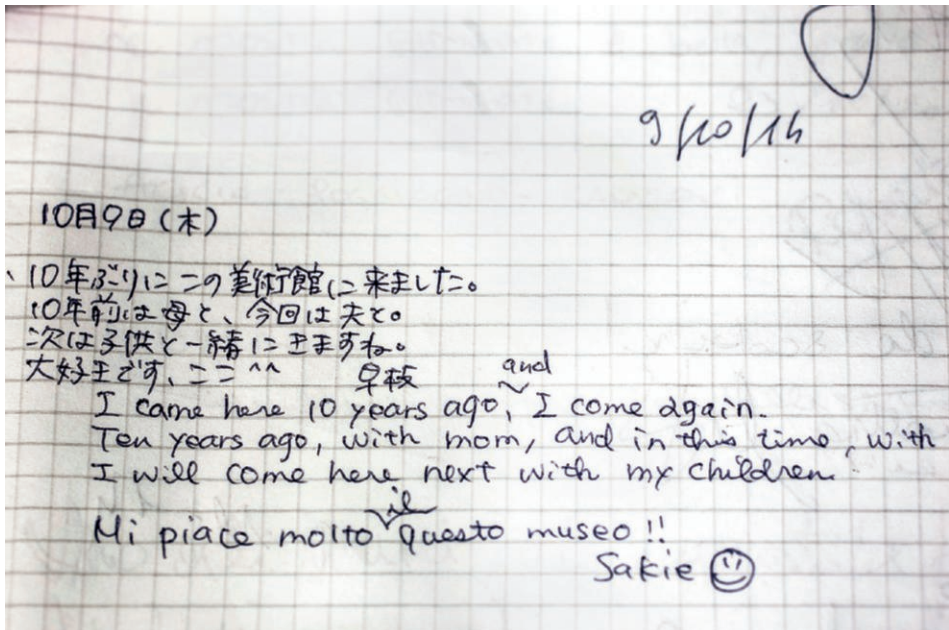 9/10/14
10月9日(木)
10年ぶりにこの美術館に来ました。
10年前は母と、今回は夫と。
次は子供と一緒にきますね。
大好きです、ここ ^^ 早枝
and
I came here 10 years ago, I come again.
Ten years ago, with mom, and in this time, with
I will come here next with my children.
il
Mi piace molto questo museo!!
Sakie